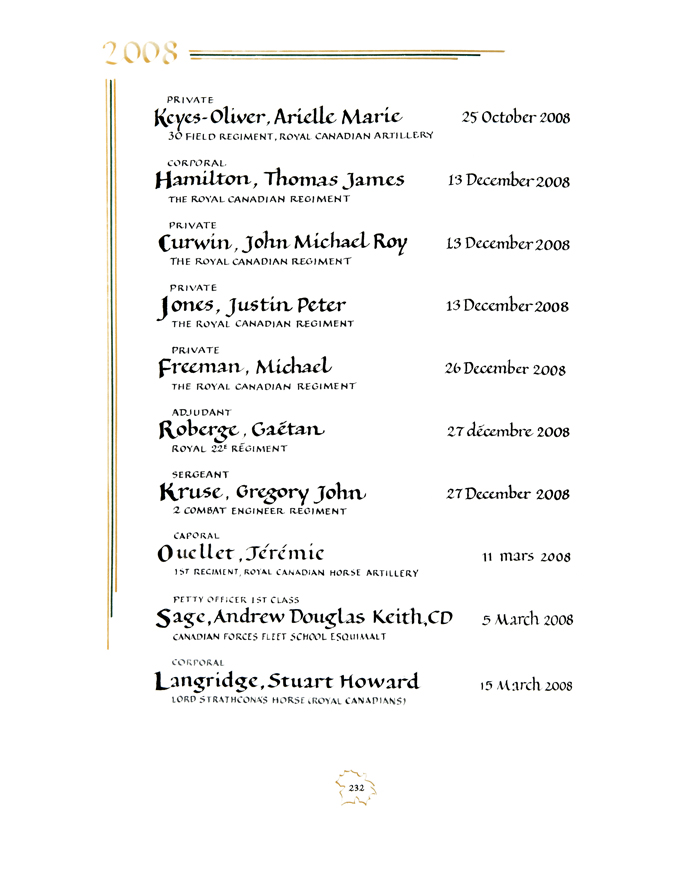 2008
PRIVATE
Keyes-Oliver, Arielle Marie 25 October 2008
30 FIELD REGIMENT, ROYAL CANADIAN ARTILLERY
CORPORAL
Hamilton, Thomas James 13 December 2008
THE ROYAL CANADIAN REGIMENT
PRIVATE
Curwin, John Michael Roy 13 December 2008
THE ROYAL CANADIAN REGIMENT
PRIVATE
Jones, Justin Peter 13 December 2008
THE ROYAL CANADIAN REGIMENT
PRIVATE
Freeman, Michael 26 December 2008
THE ROYAL CANADIAN REGIMENT
ADJUDANT
Roberge, Gaétan 27 décembre 2008
ROYAL 22E RÉGIMENT
SERGEANT
Kruse, Gregory John 27 December 2008
2 COMBAT ENGINEER REGIMENT
CAPORAL
Ouellet, Jérémie 11 mars 2008
1ST REGIMENT, ROYAL CANADIAN HORSE ARTILLERY
PETTY OFFICER 1ST CLASS
Sage, Andrew Douglas Keith, CD 5 March 2008
CANADIAN FORCES FLEET SCHOOL ESQUIMALT
CORPORAL
Langridge, Stuart Howard 15 March 2008
LORD STRATHCONA'S HORSE (ROYAL CANADIANS)
232